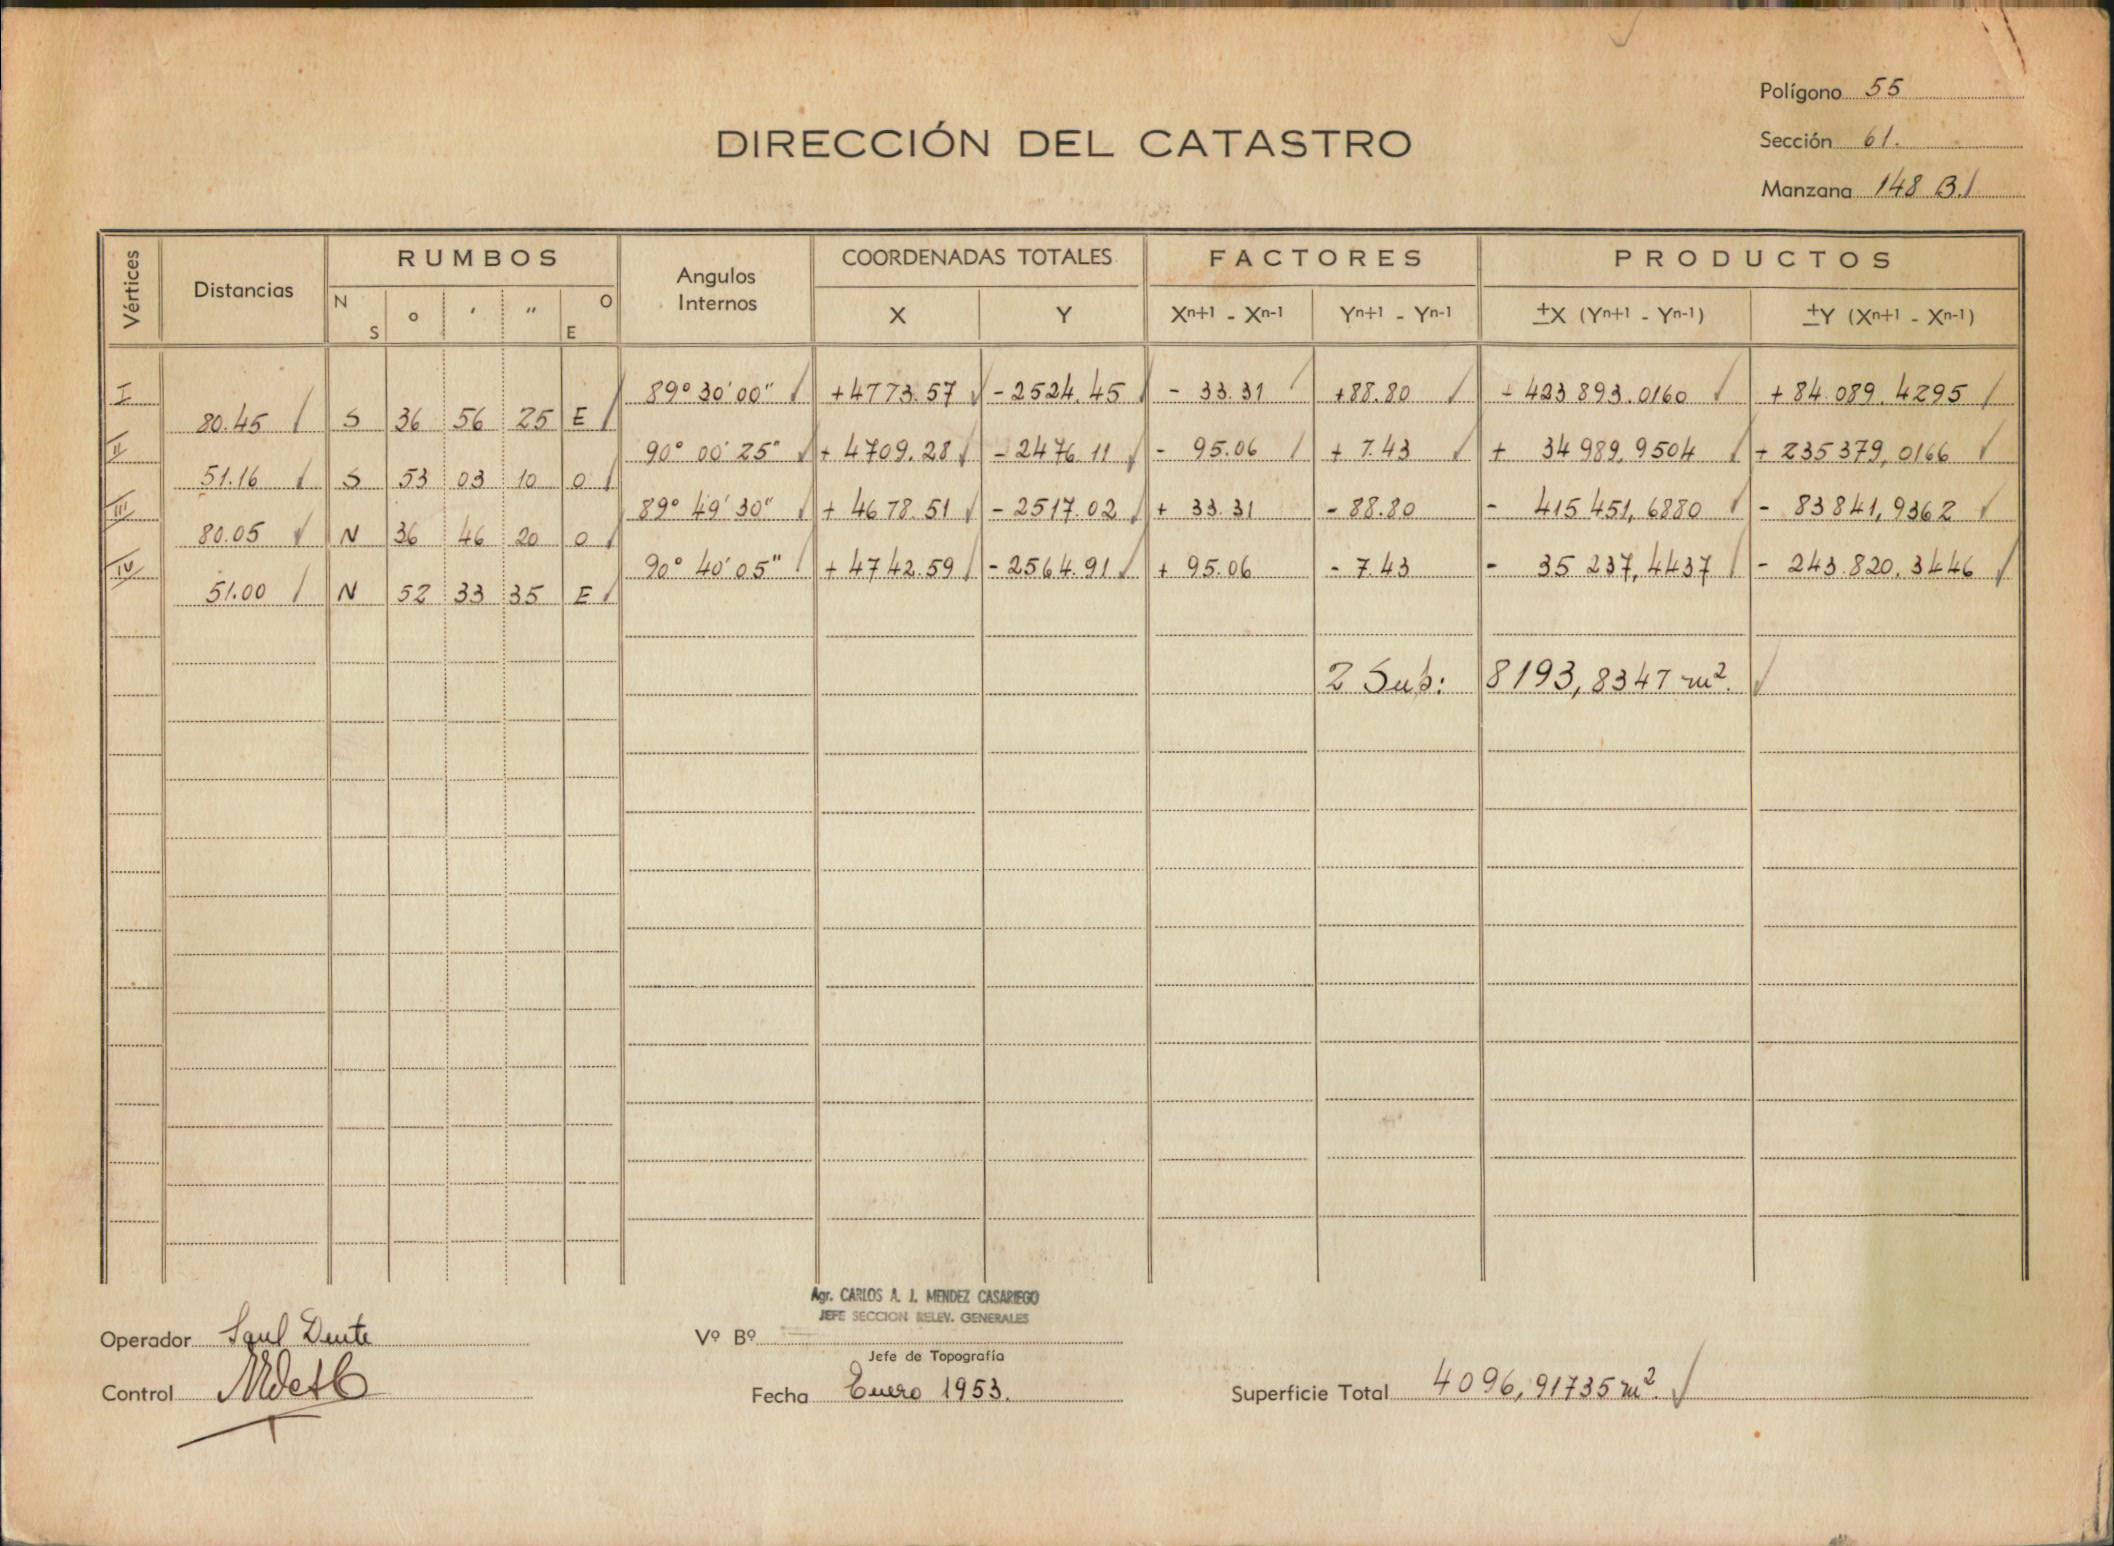 Polígono 55
DIRECCIÓN DEL CATASTRO
Sección 61.
Manzana 148 B.1
Vértices Distancias RUMBOS Angulos Internos COORDENADAS TOTALES FACTORES PRODUCTOS
N S ° ′ ″ O E X Y Xn+1 - Xn-1 Yn+1 - Yn-1 ±X (Yn+1 - Yn-1) ±Y (Xn+1 - Xn-1)
I 89° 30' 00" +4773.57 -2524.45 - 33.31 +88.80 + 423 893.0160 + 84.089.4295
80.45 S 36 56 25 E
II 90° 00' 25" + 4709.28 - 2476.11 - 95.06 + 7.43 + 34 989,9504 + 235 379,0166
51.16 S 53 03 10 O
III 89° 49' 30" + 4678.51 - 2517.02 + 33.31 - 88.80 - 415 451,6880 - 83 841,9362
80.05 N 36 46 20 O
IV 90° 40' 05" + 4742.59 - 2564.91 + 95.06 - 7.43 - 35 237,4437 - 243.820.3446
51.00 N 52 33 35 E
2 Sup: 8193,8347 m².
Agr. CARLOS A. J. MENDEZ CASARIEGO
JEFE SECCION RELEV. GENERALES
Operador Saul Dente
Vº Bº
Jefe de Topografía
Control
Fecha Enero 1953.
Superficie Total 4096,91735 m².